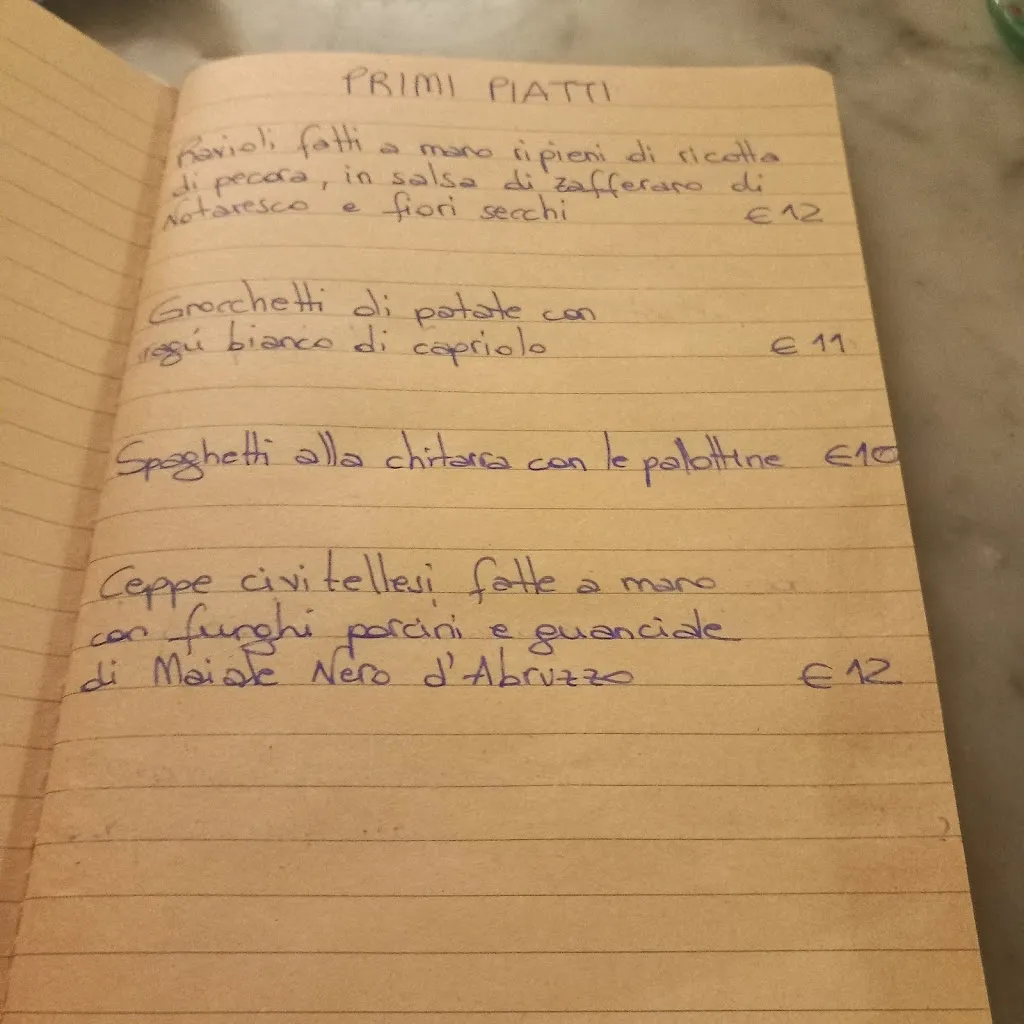 PRIMI PIATTI
Ravioli fatti a mano ripieni di ricotta
di pecora, in salsa di zafferano di
Notaresco e fiori secchi €12
Gnocchetti di patate con
ragú bianco di capriolo €11
Spaghetti alla chitarra con le pallottine €10
Ceppe civitellesi fatte a mano
con funghi porcini e guanciale
di Maiale Nero d'Abruzzo €12